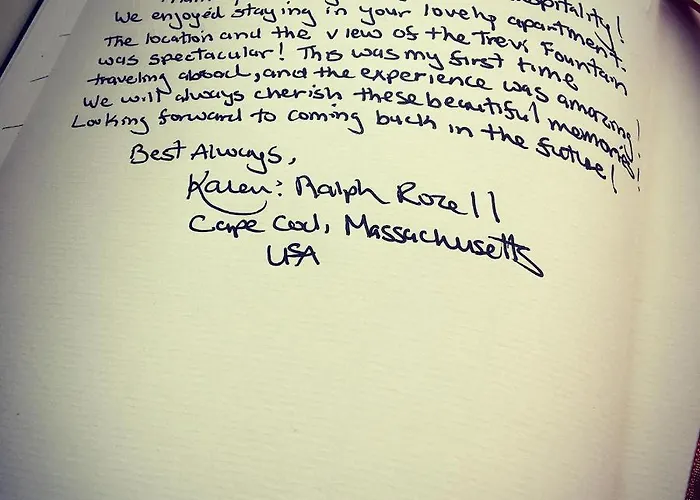 hospitality!
We enjoyed staying in your lovely apartment.
The location and the view of the Trevi Fountain
was spectacular! This was my first time
traveling abroad, and the experience was amazing!
We will always cherish these beautiful memories!
Looking forward to coming back in the future!
Best Always,
Karen: Ralph Rozell
Cape Cod, Massachusetts
USA